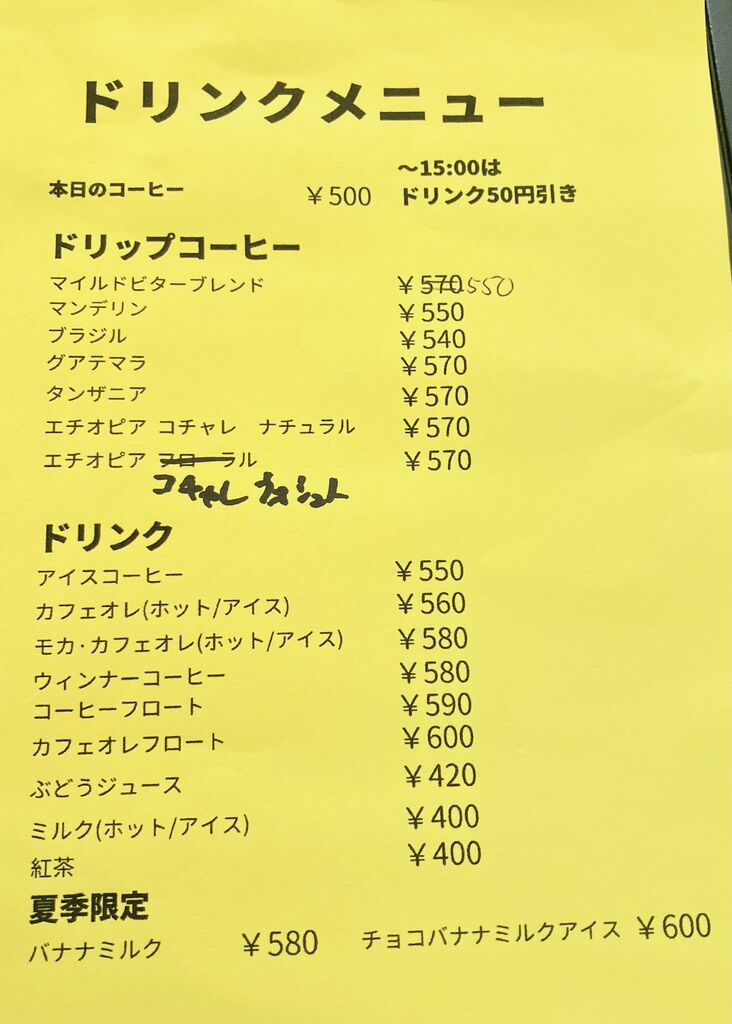 ドリンクメニュー
～15:00は
本日のコーヒー ￥500 ドリンク50円引き
ドリップコーヒー
マイルドビターブレンド ￥570 550
マンデリン ￥550
ブラジル ￥540
グアテマラ ￥570
タンザニア ￥570
エチオピア コチャレ ナチュラル ￥570
エチオピア フローラル ￥570
コチャレ
ドリンク
アイスコーヒー ￥550
カフェオレ(ホット/アイス) ￥560
モカ・カフェオレ(ホット/アイス) ￥580
ウィンナーコーヒー ￥580
コーヒーフロート ￥590
カフェオレフロート ￥600
ぶどうジュース ￥420
ミルク(ホット/アイス) ￥400
紅茶 ￥400
夏季限定
バナナミルク ￥580 チョコバナナミルクアイス ￥600